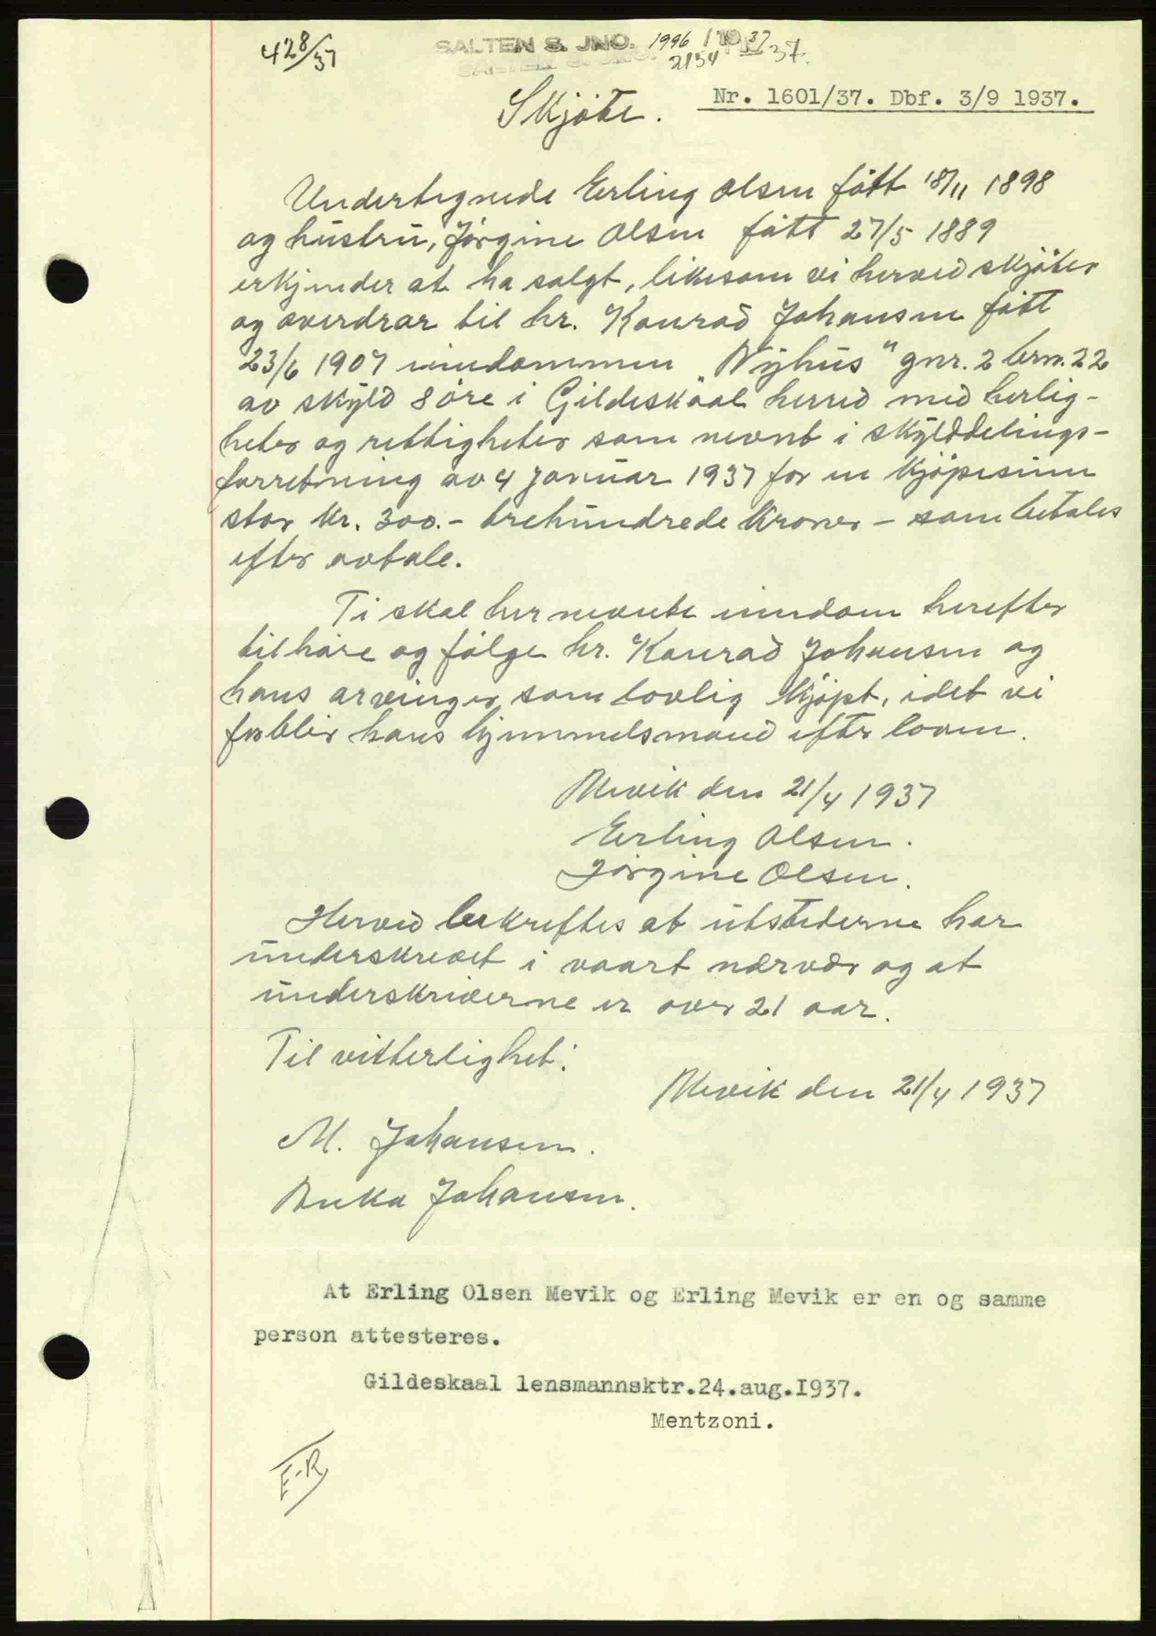 428/37
SALTEN S. JNO. 1996 / 1937
2154 37.
Nr. 1601/37. Dbf. 3/9 1937.
Skjöte.
Undertegnede Erling Olsen født 18/11 1898
og hustru, Jörgine Olsen født 27/5 1889
erkjender at ha solgt, likesom vi herved skjöter
og overdrar til hr. Konrad Johansen født
23/6 1907 eiendommen "Nyhus" gnr. 2 brn. 22
av skyld 8 öre i Gildeskaal herred med herlig-
heter og rettigheter som nevnt i skylddelings-
forretning av 4 januar 1937 for en kjöpesum
stor kr. 300.- trehundrede kroner - som betales
efter avtale.
Ti skal her nevnte eiendom herefter
tilhöre og fölge hr. Konrad Johansen og
hans arvinger som lovlig kjöpt, idet vi
forblir hans hjemmelsmand efter loven.
Mevik den 21/4 1937
Erling Olsen.
Jörgine Olsen.
Herved bekreftes at utstederne har
underskrevet i vaart nærvær og at
underskriverne er over 21 aar.
Til vitterlighet:
Mevik den 21/4 1937
M. Johansen.
Johansen.
At Erling Olsen Mevik og Erling Mevik er en og samme
person attesteres.
Gildeskaal lensmannsktr.24.aug.I937.
Mentzoni.
E-R